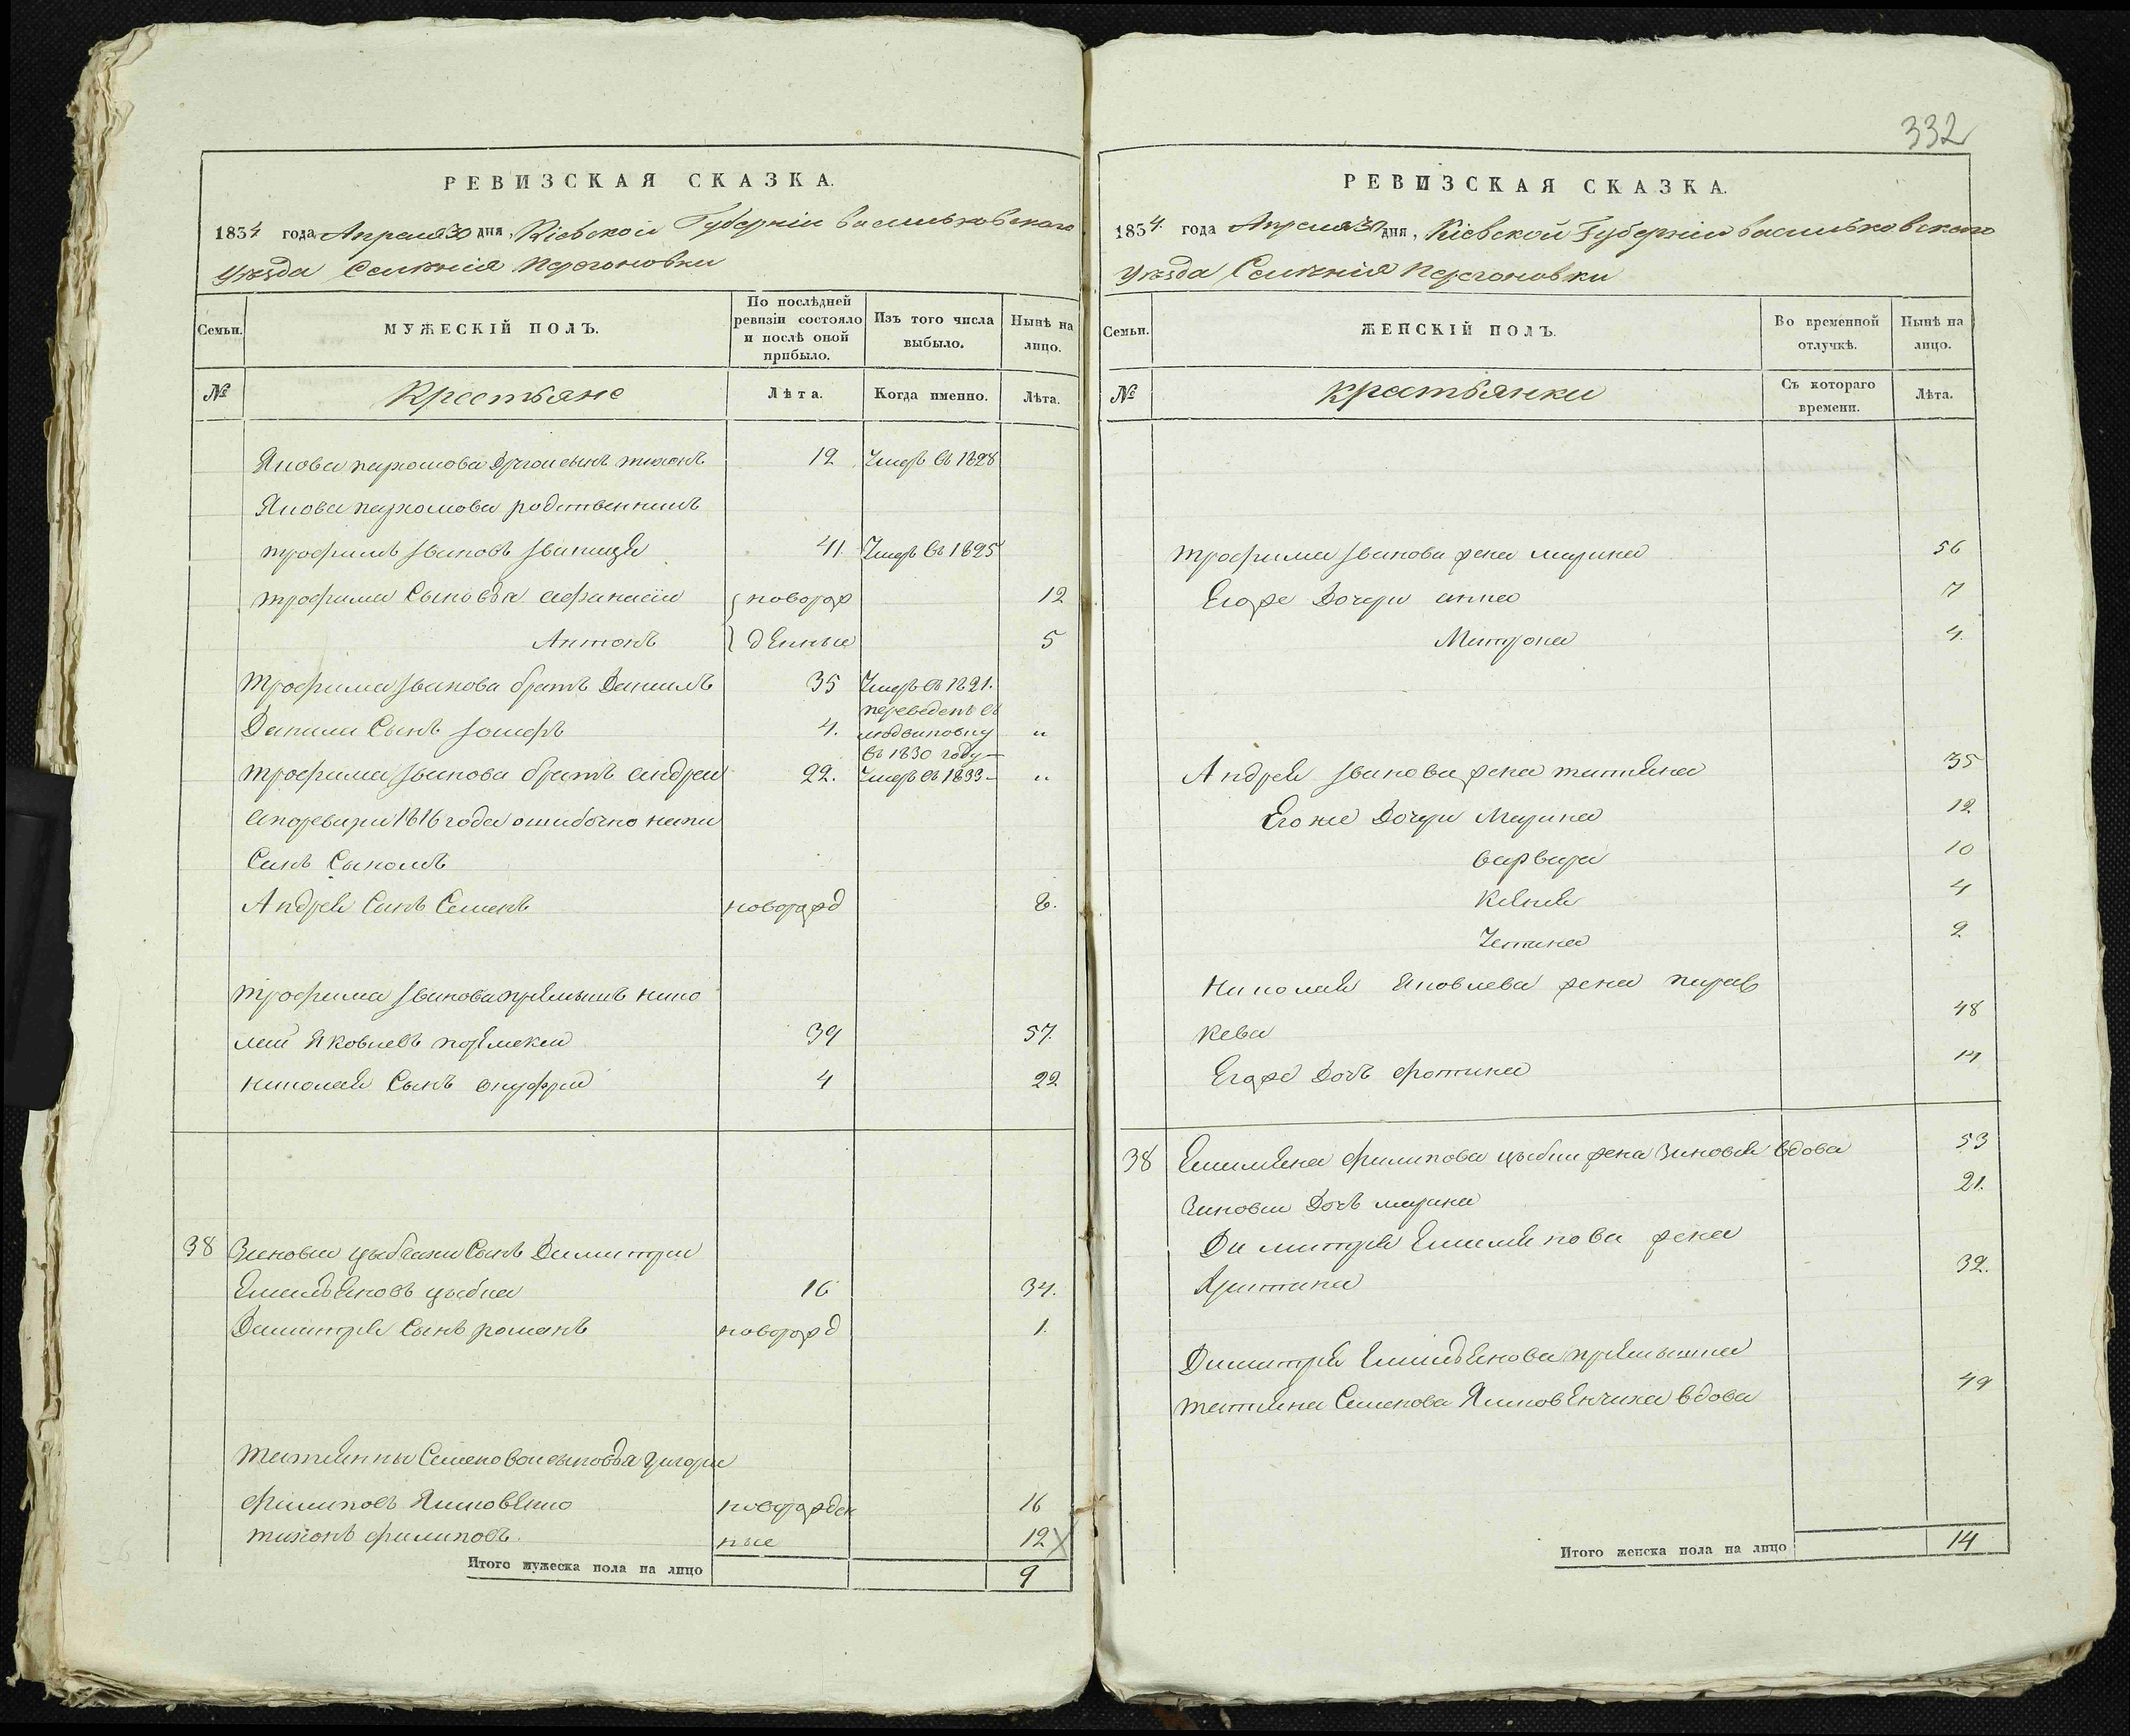 332
РЕВИЗСКАЯ СКАЗКА.
1834 года Апреля 30 дня, Кіевской Губерніи васильковского
Уѣзда Селѣнія Перегоновки
Семьи.
МУЖЕСКІЙ ПОЛЪ.
По послѣдней ревизіи состояло и послѣ оной прибыло.
Изъ того числа выбыло.
Нынѣ на лицо.
№
Крестьяне
Лѣта.
Когда именно.
Лѣта.
Якова пархомова другои сынъ тихонъ 12 Умеръ въ 1828
Якова пархомова родственникъ
трофимъ Ивановъ 41. Умеръ въ 1825
трофима Сыновья афанасіи { новорож 12
Антонъ } дЕнные 5
Трофима Иванова братъ Данилъ 35 Умеръ въ 1821.
Данила Сынъ 4. переведенъ въ
въ 1830 году „
трофима Иванова братъ андреи 22. Умеръ въ 1833 „
1816 года ошибочно напи
санъ Сыномъ
Андрея Синъ Семенъ новорожд 8.
трофима Иванова прЕмышъ нико
лаи Яковлевъ 39 57.
николая Сынъ онуфрий 4 22
38 Зиновии Сынъ Димитри
ЕмельЕновъ цыбка 16 34.
Димитрия Сынъ романъ новорожд 1.
татиянны Семеновои сыновья григори
филиповъ новорожден 16
тихонъ филиповъ ные 12
Итого мужеска пола на лицо 9
РЕВИЗСКАЯ СКАЗКА.
1834. года Апреля 30 дня, Кіевской Губерніи васильковского
Уѣзда Селѣнія Перегоновки
Семьи.
ЖЕНСКІЙ ПОЛЪ.
Во временной отлучкѣ.
Нынѣ на лицо.
№
крестьянки
Съ котораго времени.
Лѣта.
трофима Иванова жена марина 56
Егоже Дочери анна 7
Матрона 4.
Андрея Иванова жена татияна 35
Егоже Дочери Марина 12
варвара 10
4
Устина 2
Николая Яковлева жена парас
кева 48
Егоже Дочь фотина 14
38 Емилияна филипова цыбки жена Зиновия вдова 53
Зиновии Дочь марина 21.
Димитрия Емилиянова жена
Христина 32.
Димитрия ЕмильЕнова прЕмышка
татияна Семенова вдова 49
Итого женска пола на лицо 14